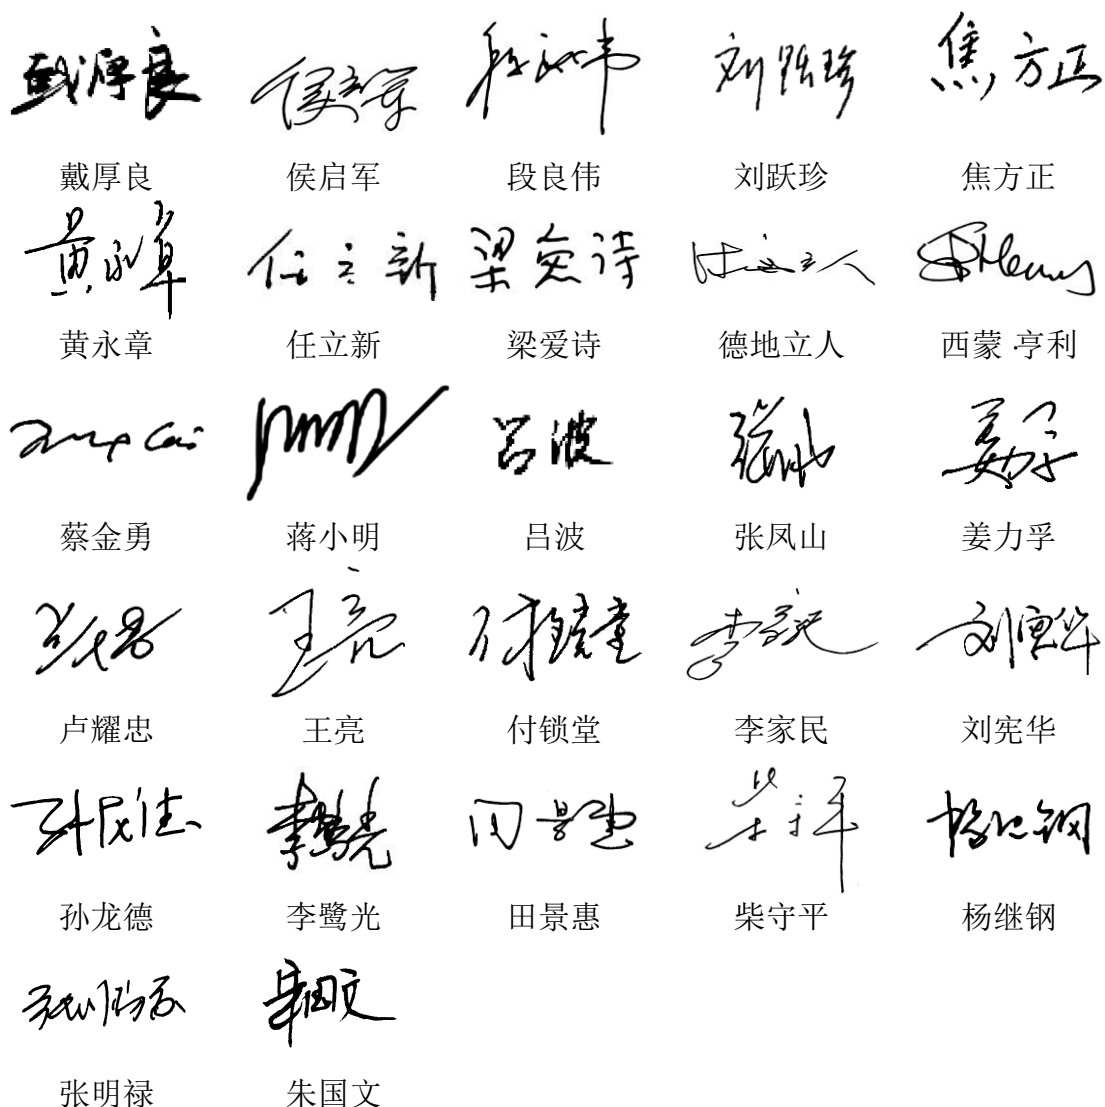 戴厚良 侯启军 段良伟 刘跃珍 焦方正
戴厚良 侯启军 段良伟 刘跃珍 焦方正
黄永章 任立新 梁爱诗 德地立人
黄永章 任立新 梁爱诗 德地立人 西蒙·亨利
吕波 张凤山 姜力孚
蔡金勇 蒋小明 吕波 张凤山 姜力孚
王亮 付锁堂 李家民 刘宪华
卢耀忠 王亮 付锁堂 李家民 刘宪华
孙龙德 李鹭光 田景惠 柴守平 杨继钢
孙龙德 李鹭光 田景惠 柴守平 杨继钢
张明禄 朱国文
张明禄 朱国文